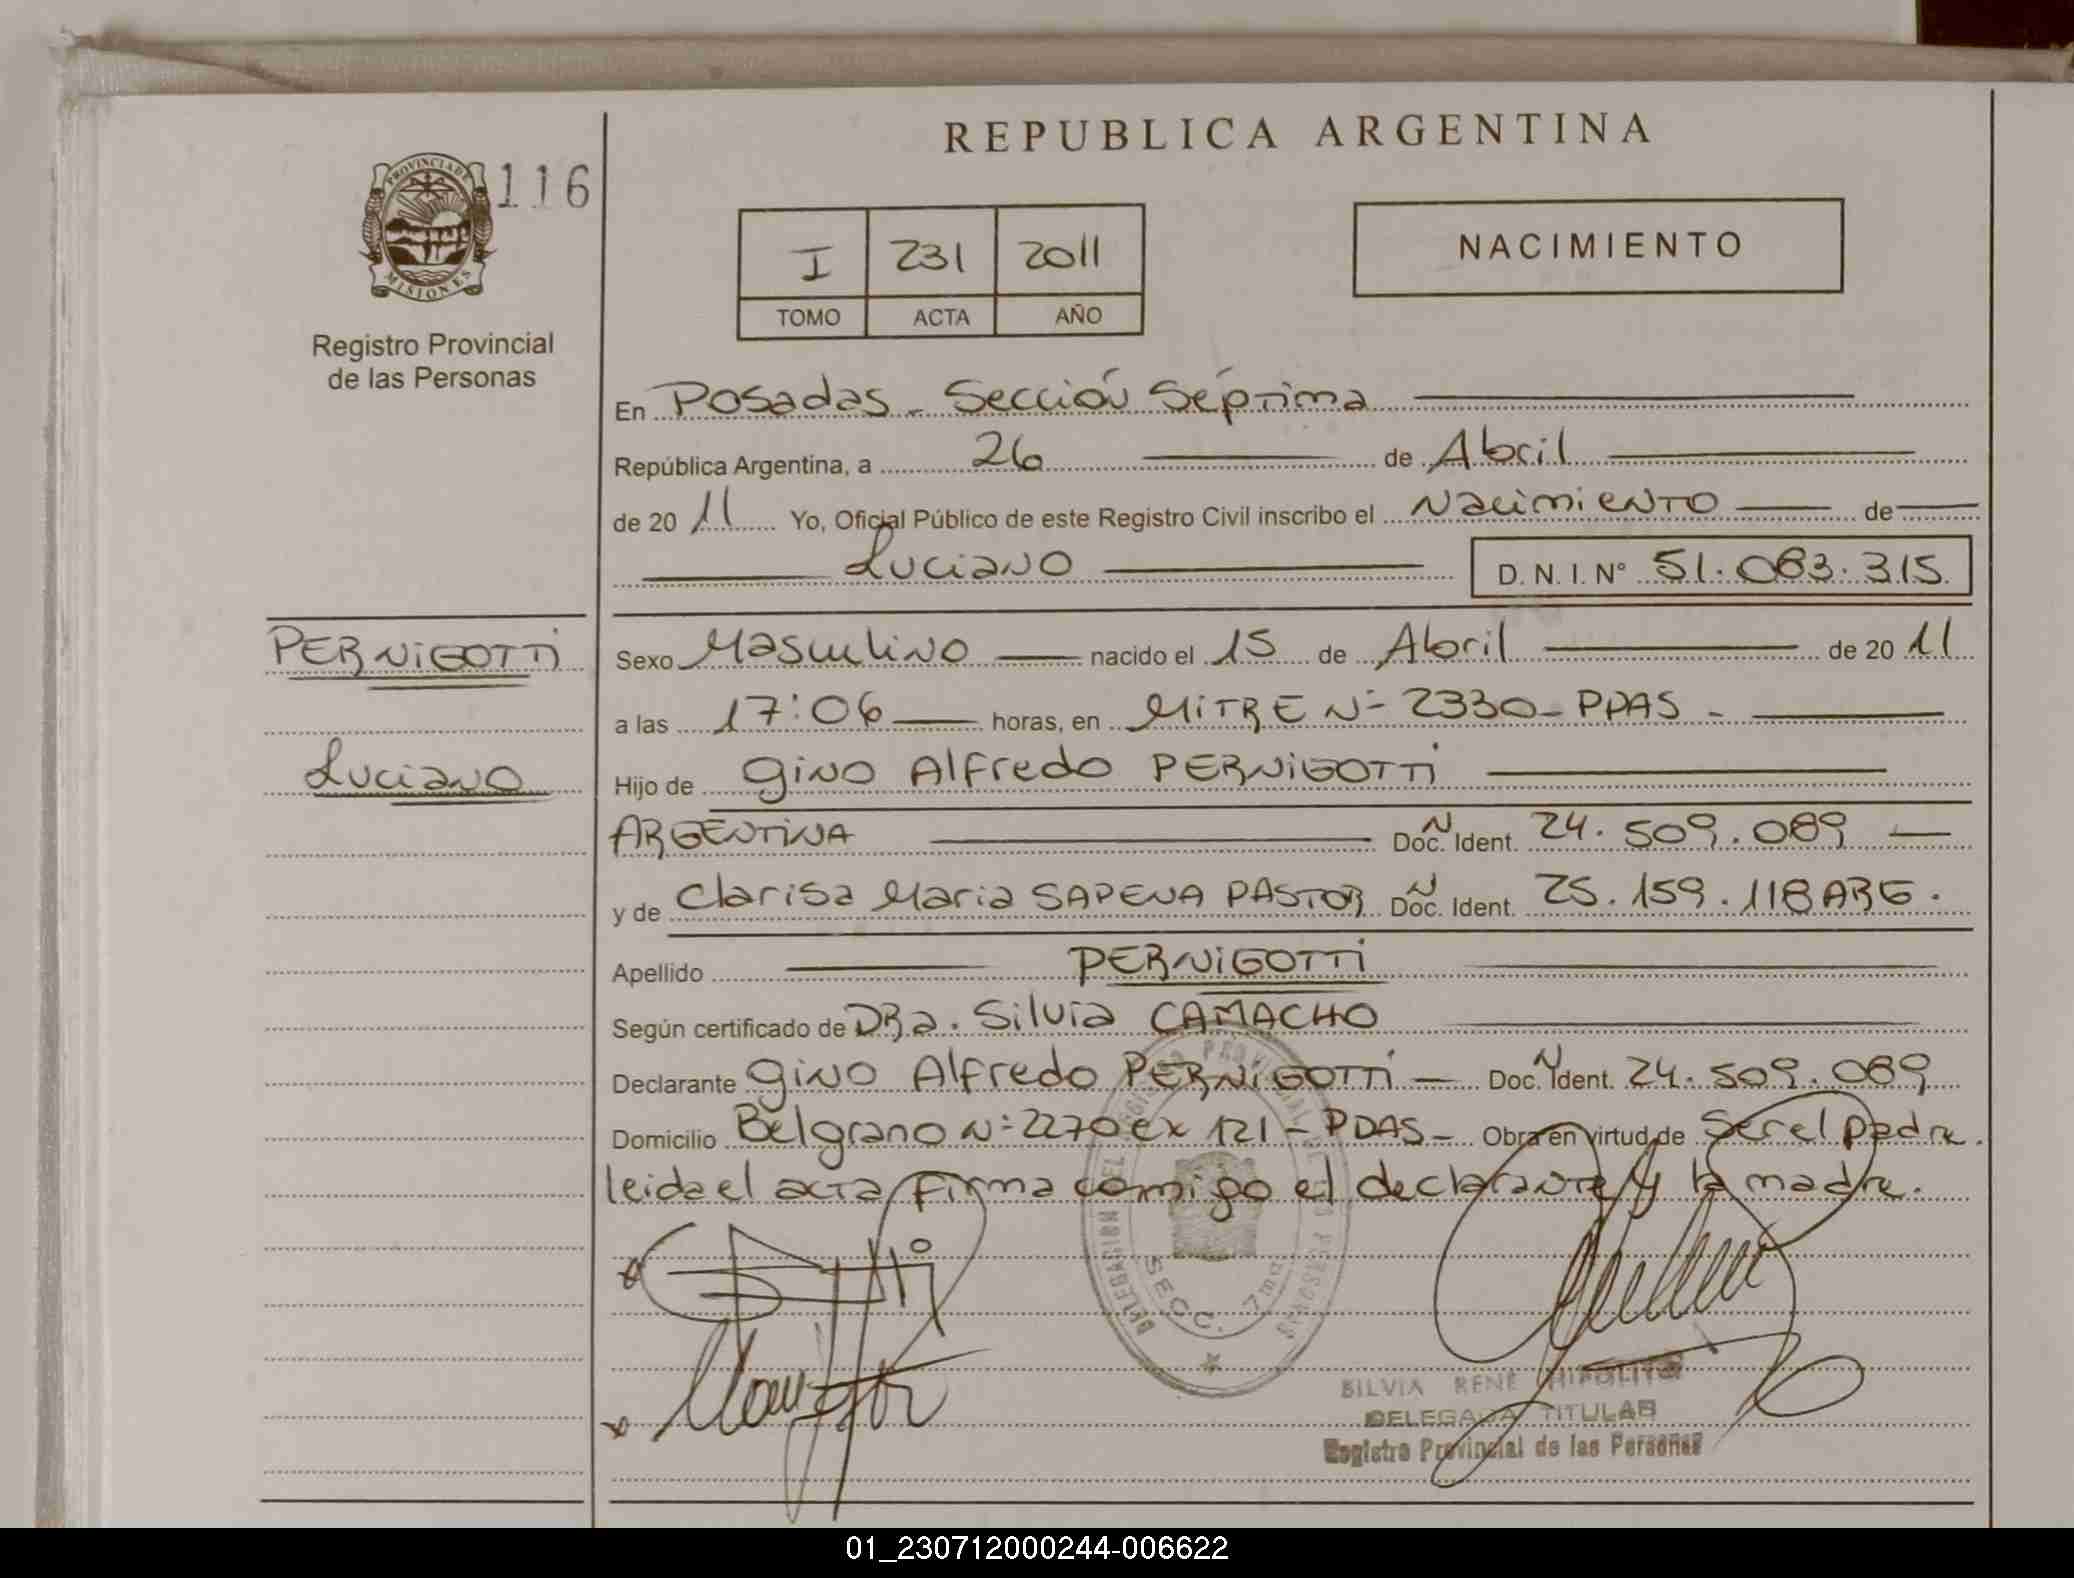 REPUBLICA ARGENTINA
PROVINCIA DE
MISIONES
116
Registro Provincial
de las Personas
I 231 2011
TOMO ACTA AÑO
NACIMIENTO
En Posadas - Sección Séptima
República Argentina, a 26 de Abril
de 2011 Yo, Oficial Público de este Registro Civil inscribo el Nacimiento de
Luciano D. N. I. N° 51.083.315
PERNIGOTTI
Luciano
Sexo Masculino nacido el 15 de Abril de 2011
a las 17:06 horas, en MITRE N° 2330 - PDAS -
Hijo de Gino Alfredo PERNIGOTTI
ARGENTINA Doc. N Ident. 24.509.089
y de Clarisa Maria SAPENA PASTOR Doc. N Ident. 25.159.118 ARG.
Apellido PERNIGOTTI
Según certificado de DRa. Silvia CAMACHO
Declarante Gino Alfredo PERNIGOTTI Doc. N Ident. 24.509.089
Domicilio Belgrano N° 2270 ex 121 - PDAS - Obra en virtud de Ser el padre.
leida el acta firma conmigo el declarante y la madre.
DELEGACION DEL REGISTRO PROVINCIAL DE LAS PERSONAS
SECC. 7ma
SILVIA RENE HIPOLITO
DELEGADA TITULAR
Registro Provincial de las Personas
01_230712000244-006622